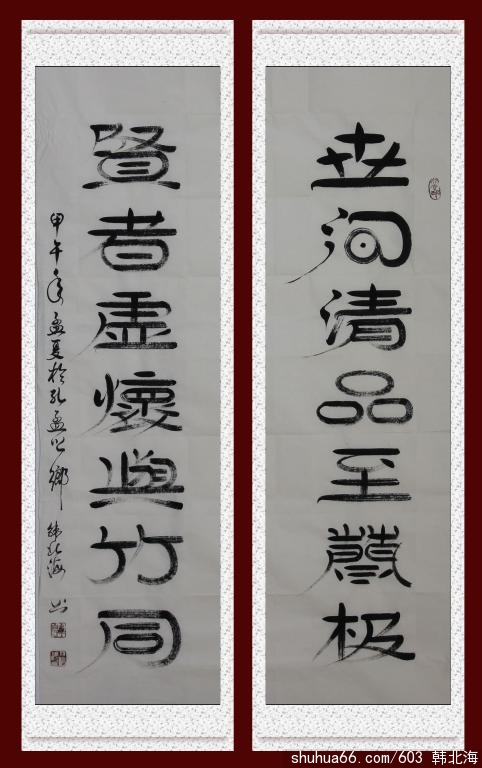 世间清品至蘭极
賢者虚懷與竹同
甲午年孟夏於孔孟之鄉 韩北海 书
shuhua66.com/603 韩北海